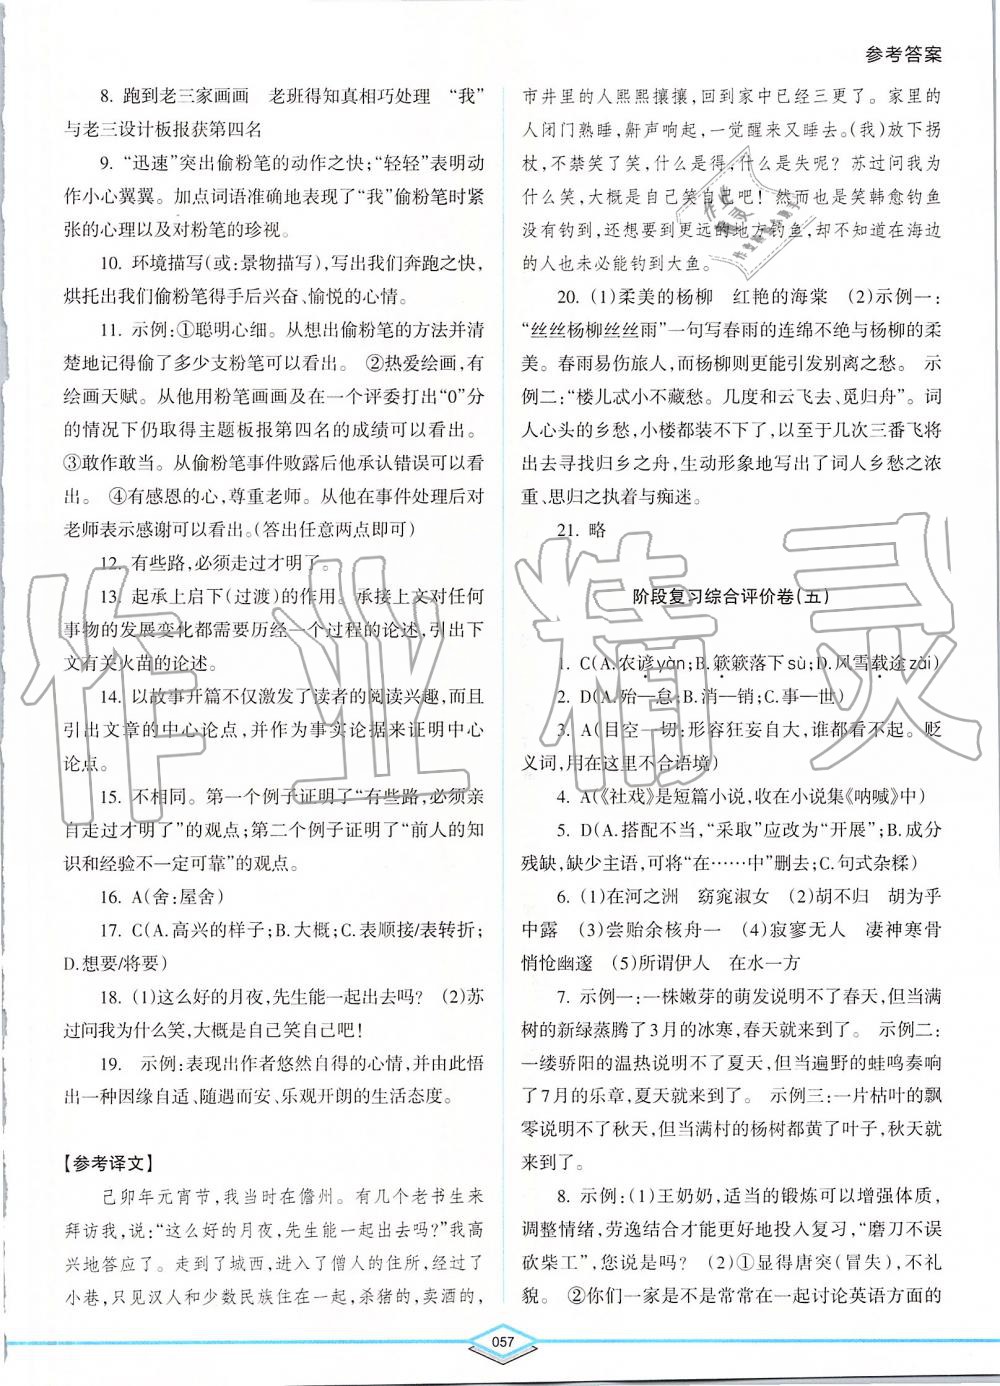 参考答案
8. 跑到老三家画画　老班得知真相巧处理　“我”
与老三设计板报获第四名
9. “迅速”突出偷粉笔的动作之快;“轻轻”表明动
作小心翼翼。加点词语准确地表现了“我”偷粉笔时紧
张的心理以及对粉笔的珍视。
10. 环境描写(或:景物描写),写出我们奔跑之快,
烘托出我们偷粉笔得手后兴奋、愉悦的心情。
11. 示例:①聪明心细。从想出偷粉笔的方法并清
楚地记得偷了多少支粉笔可以看出。　②热爱绘画,有
绘画天赋。从他用粉笔画画及在一个评委打出“0”分
的情况下仍取得主题板报第四名的成绩可以看出。
③敢作敢当。从偷粉笔事件败露后他承认错误可以看
出。　④有感恩的心,尊重老师。从他在事件处理后对
老师表示感谢可以看出。(答出任意两点即可)
12. 有些路,必须走过才明了。
13. 起承上启下(过渡)的作用。承接上文对任何
事物的发展变化都需要历经一个过程的论述,引出下
文有关火苗的论述。
14. 以故事开篇不仅激发了读者的阅读兴趣,而且
引出文章的中心论点,并作为事实论据来证明中心
论点。
15. 不相同。第一个例子证明了“有些路,必须亲
自走过才明了”的观点;第二个例子证明了“前人的知
识和经验不一定可靠”的观点。
16. A(舍:屋舍)
17. C(A.高兴的样子;B.大概;C.表顺接/表转折;
D.想要/将要)
18. (1)这么好的月夜,先生能一起出去吗?　(2)苏
过问我为什么笑,大概是自己笑自己吧!
19. 示例:表现出作者悠然自得的心情,并由此悟
出一种因缘自适、随遇而安、乐观开朗的生活态度。
【参考译文】
己卯年元宵节,我当时在儋州。有几个老书生来
拜访我,说:“这么好的月夜,先生能一起出去吗?”我高
兴地答应了。走到了城西,进入了僧人的住所,经过了
小巷,只见汉人和少数民族住在一起,杀猪的,卖酒的,
市井里的人熙熙攘攘,回到家中已经三更了。家里的
人闭门熟睡,鼾声响起,一觉醒来又再睡去。(我)放下拐
杖,不禁笑了笑,什么是得,什么是失呢?　苏过问我为
什么笑,大概是自己笑自己吧!　然而也是笑韩愈钓鱼
没有钓到,还想要到更远的地方钓鱼,却不知道在海边
的人也未必能钓到大鱼。
20. (1)柔美的杨柳　红艳的海棠　(2)示例一:
“丝丝杨柳丝丝雨”一句写春雨的连绵不绝与杨柳的柔
美。春雨易伤旅人,而杨柳则更能引发别离之愁。　示
例二:“楼儿忒小不藏愁。几度和云飞去、觅归舟”。词
人心头的乡愁,小楼都装不下了,以至于几次三番飞将
出去寻找归乡之舟,生动形象地写出了词人乡愁之浓
重、思归之执着与痴迷。
21. 略
阶段复习综合评价卷(五)
1. C(A.农谚yàn;B.簌簌落下sù;D.风雪载途zài)
2. D(A.殆—怠;B.消—销;C.事—世)
3. A(目空一切:形容狂妄自大,谁都看不起。贬
义词,用在这里不合语境)
4. A(《社戏》是短篇小说,收在小说集《呐喊》中)
5. D(A.搭配不当,“采取”应改为“开展”;B.成分
残缺,缺少主语,可将“在……中”删去;C.句式杂糅)
6. (1)在河之洲　窈窕淑女　(2)胡不归　胡为乎
中露　(3)尝贻余核舟一　(4)寂寥无人　凄神寒骨
悄怆幽邃　(5)所谓伊人　在水一方
7. 示例一:一株嫩芽的萌发说明不了春天,但当满
树的新绿蒸腾了3月的冰寒,春天就来到了。　示例二:
一缕骄阳的温热说明不了夏天,但当遍野的蛙鸣奏响
了7月的乐章,夏天就来到了。　示例三:一片枯叶的飘
零说明不了秋天,但当满村的杨树都黄了叶子,秋天就
来到了。
8. 示例:(1)王奶奶,适当的锻炼可以增强体质,
调整情绪,劳逸结合才能更好地投入复习,“磨刀不误
砍柴工”,您说是吗?　(2)①显得唐突(冒失),不礼
貌。　②你们一家是不是常常在一起讨论英语方面的
057
作业精灵